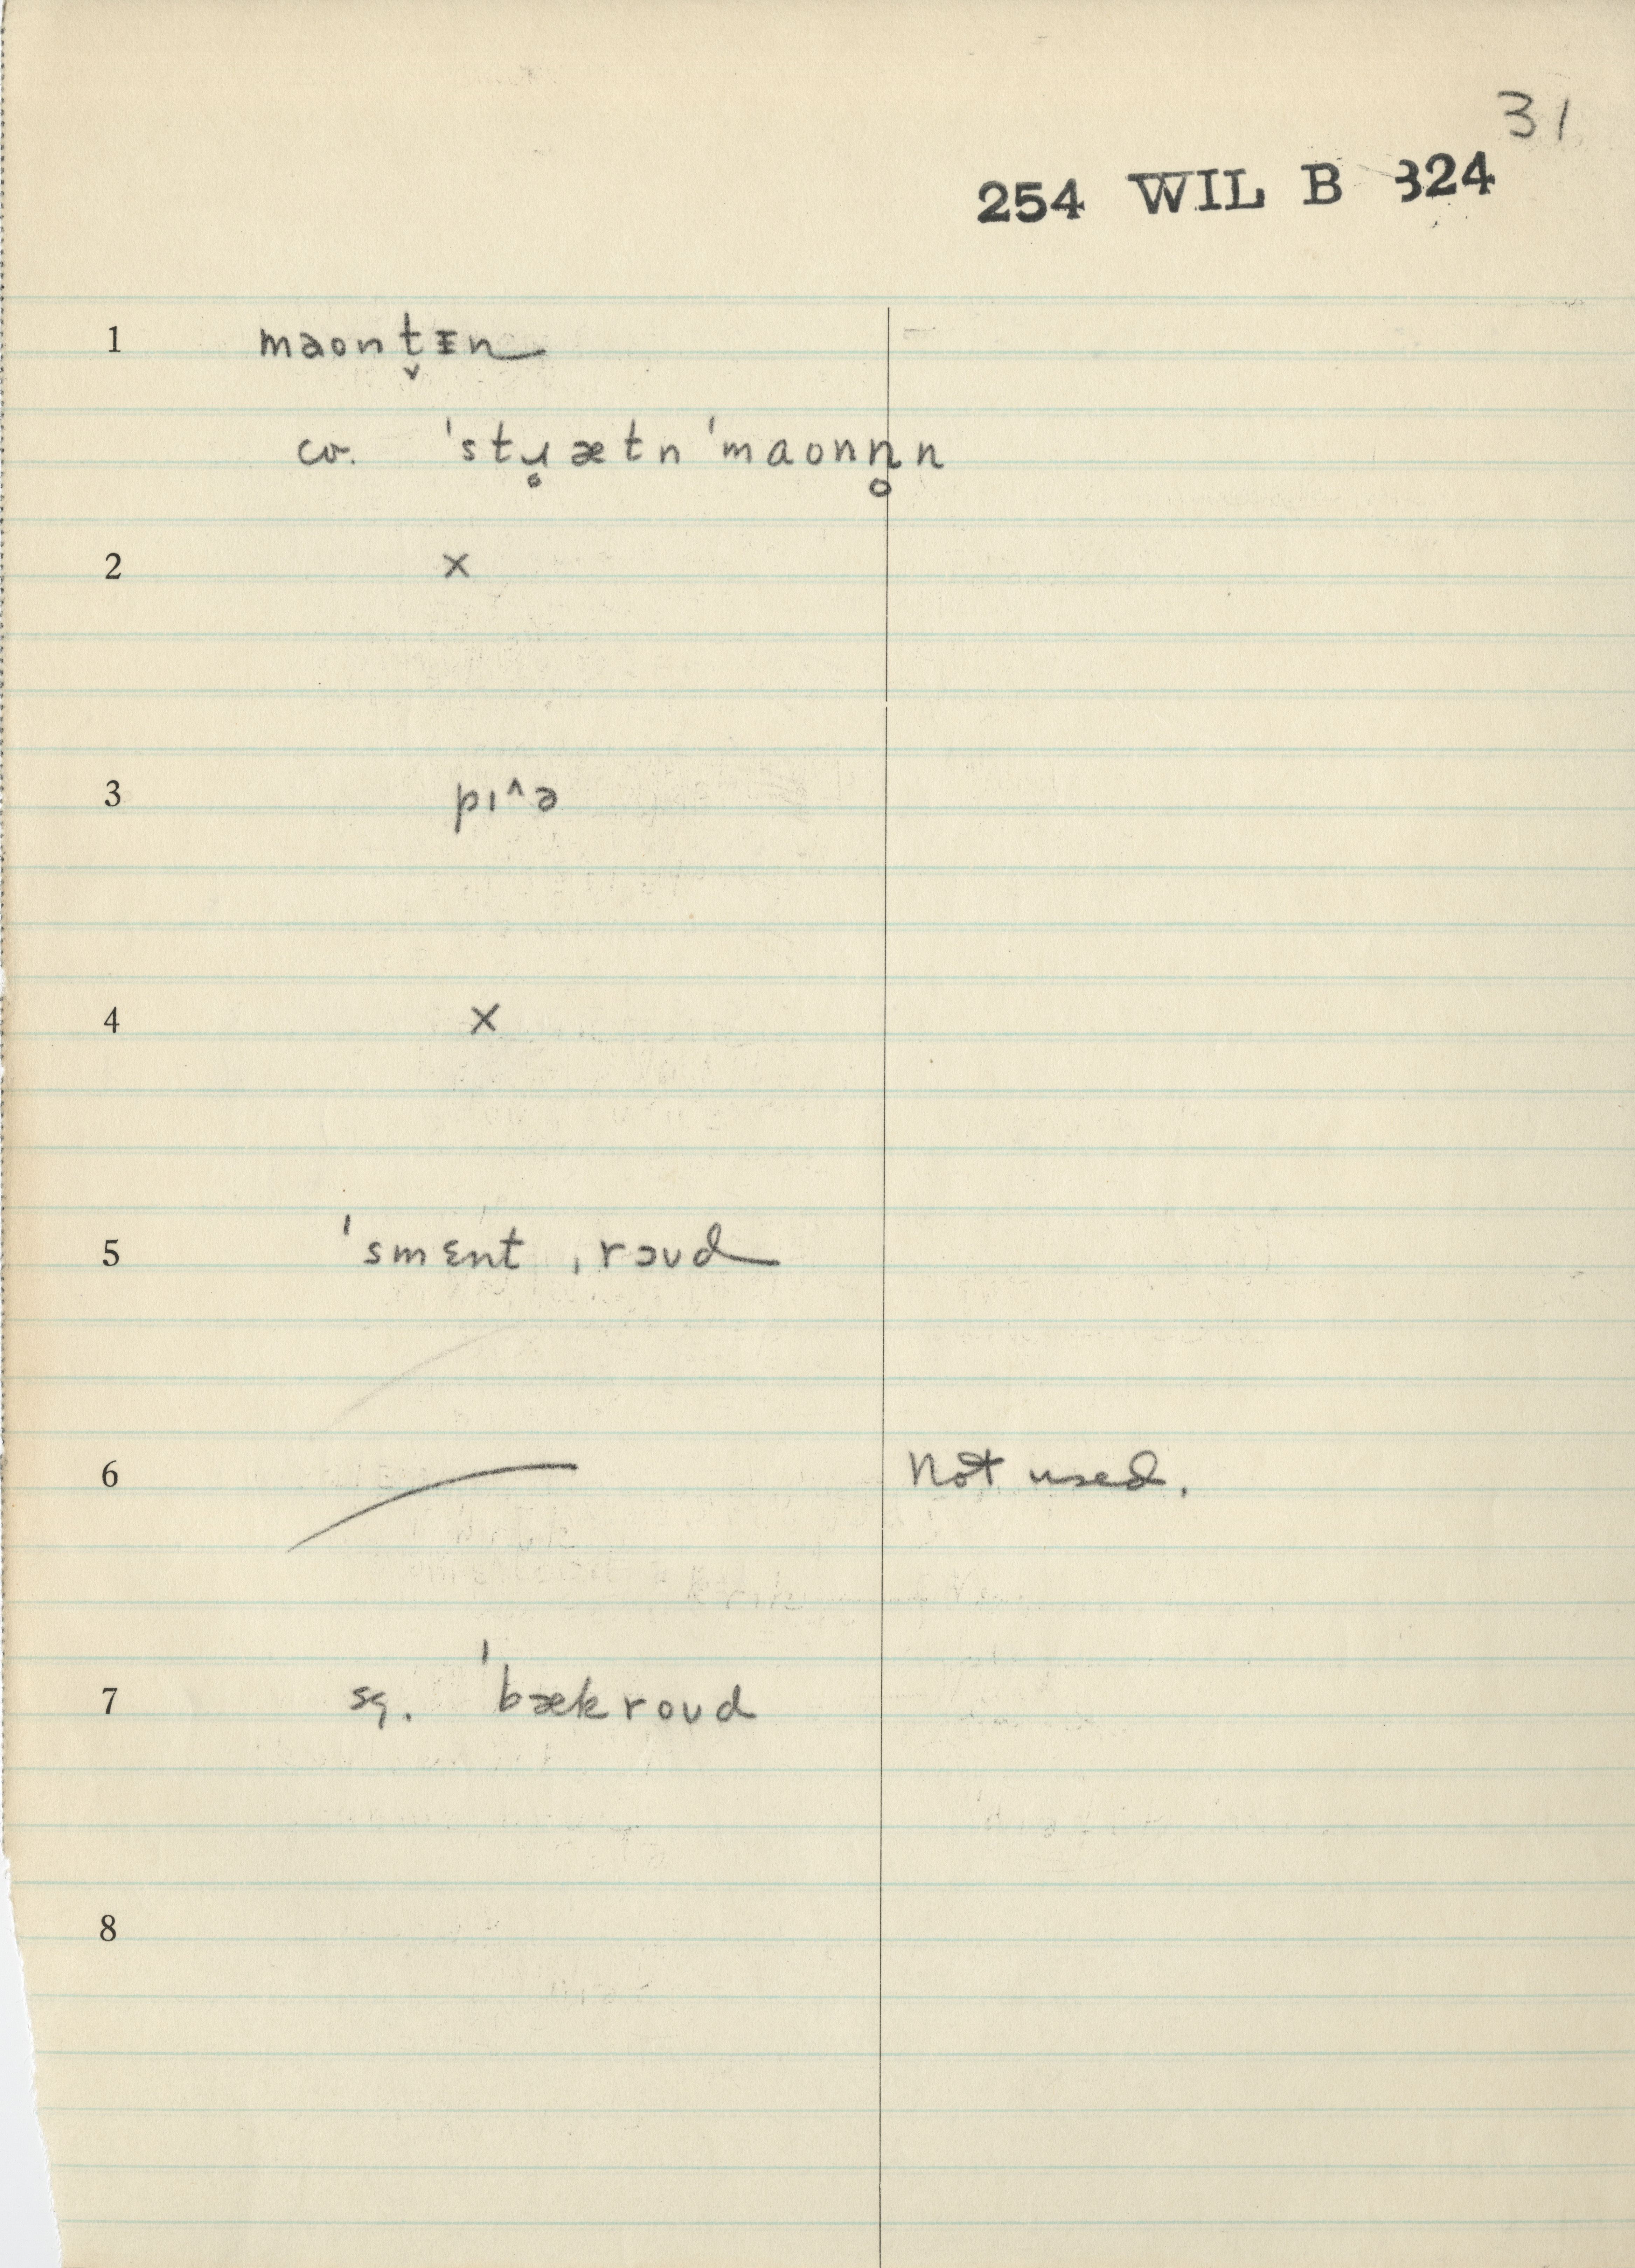 31
254 WIL B 324
1 maont̬ɪn
cv. ˈstɹ̥ætn ˈmaonn̥n
2 ×
3 pɪ^ə
4 ×
5 ˈsmɛnt ˌrəʊd
6 Not used.
7 sq. ˈbækroʊd
8